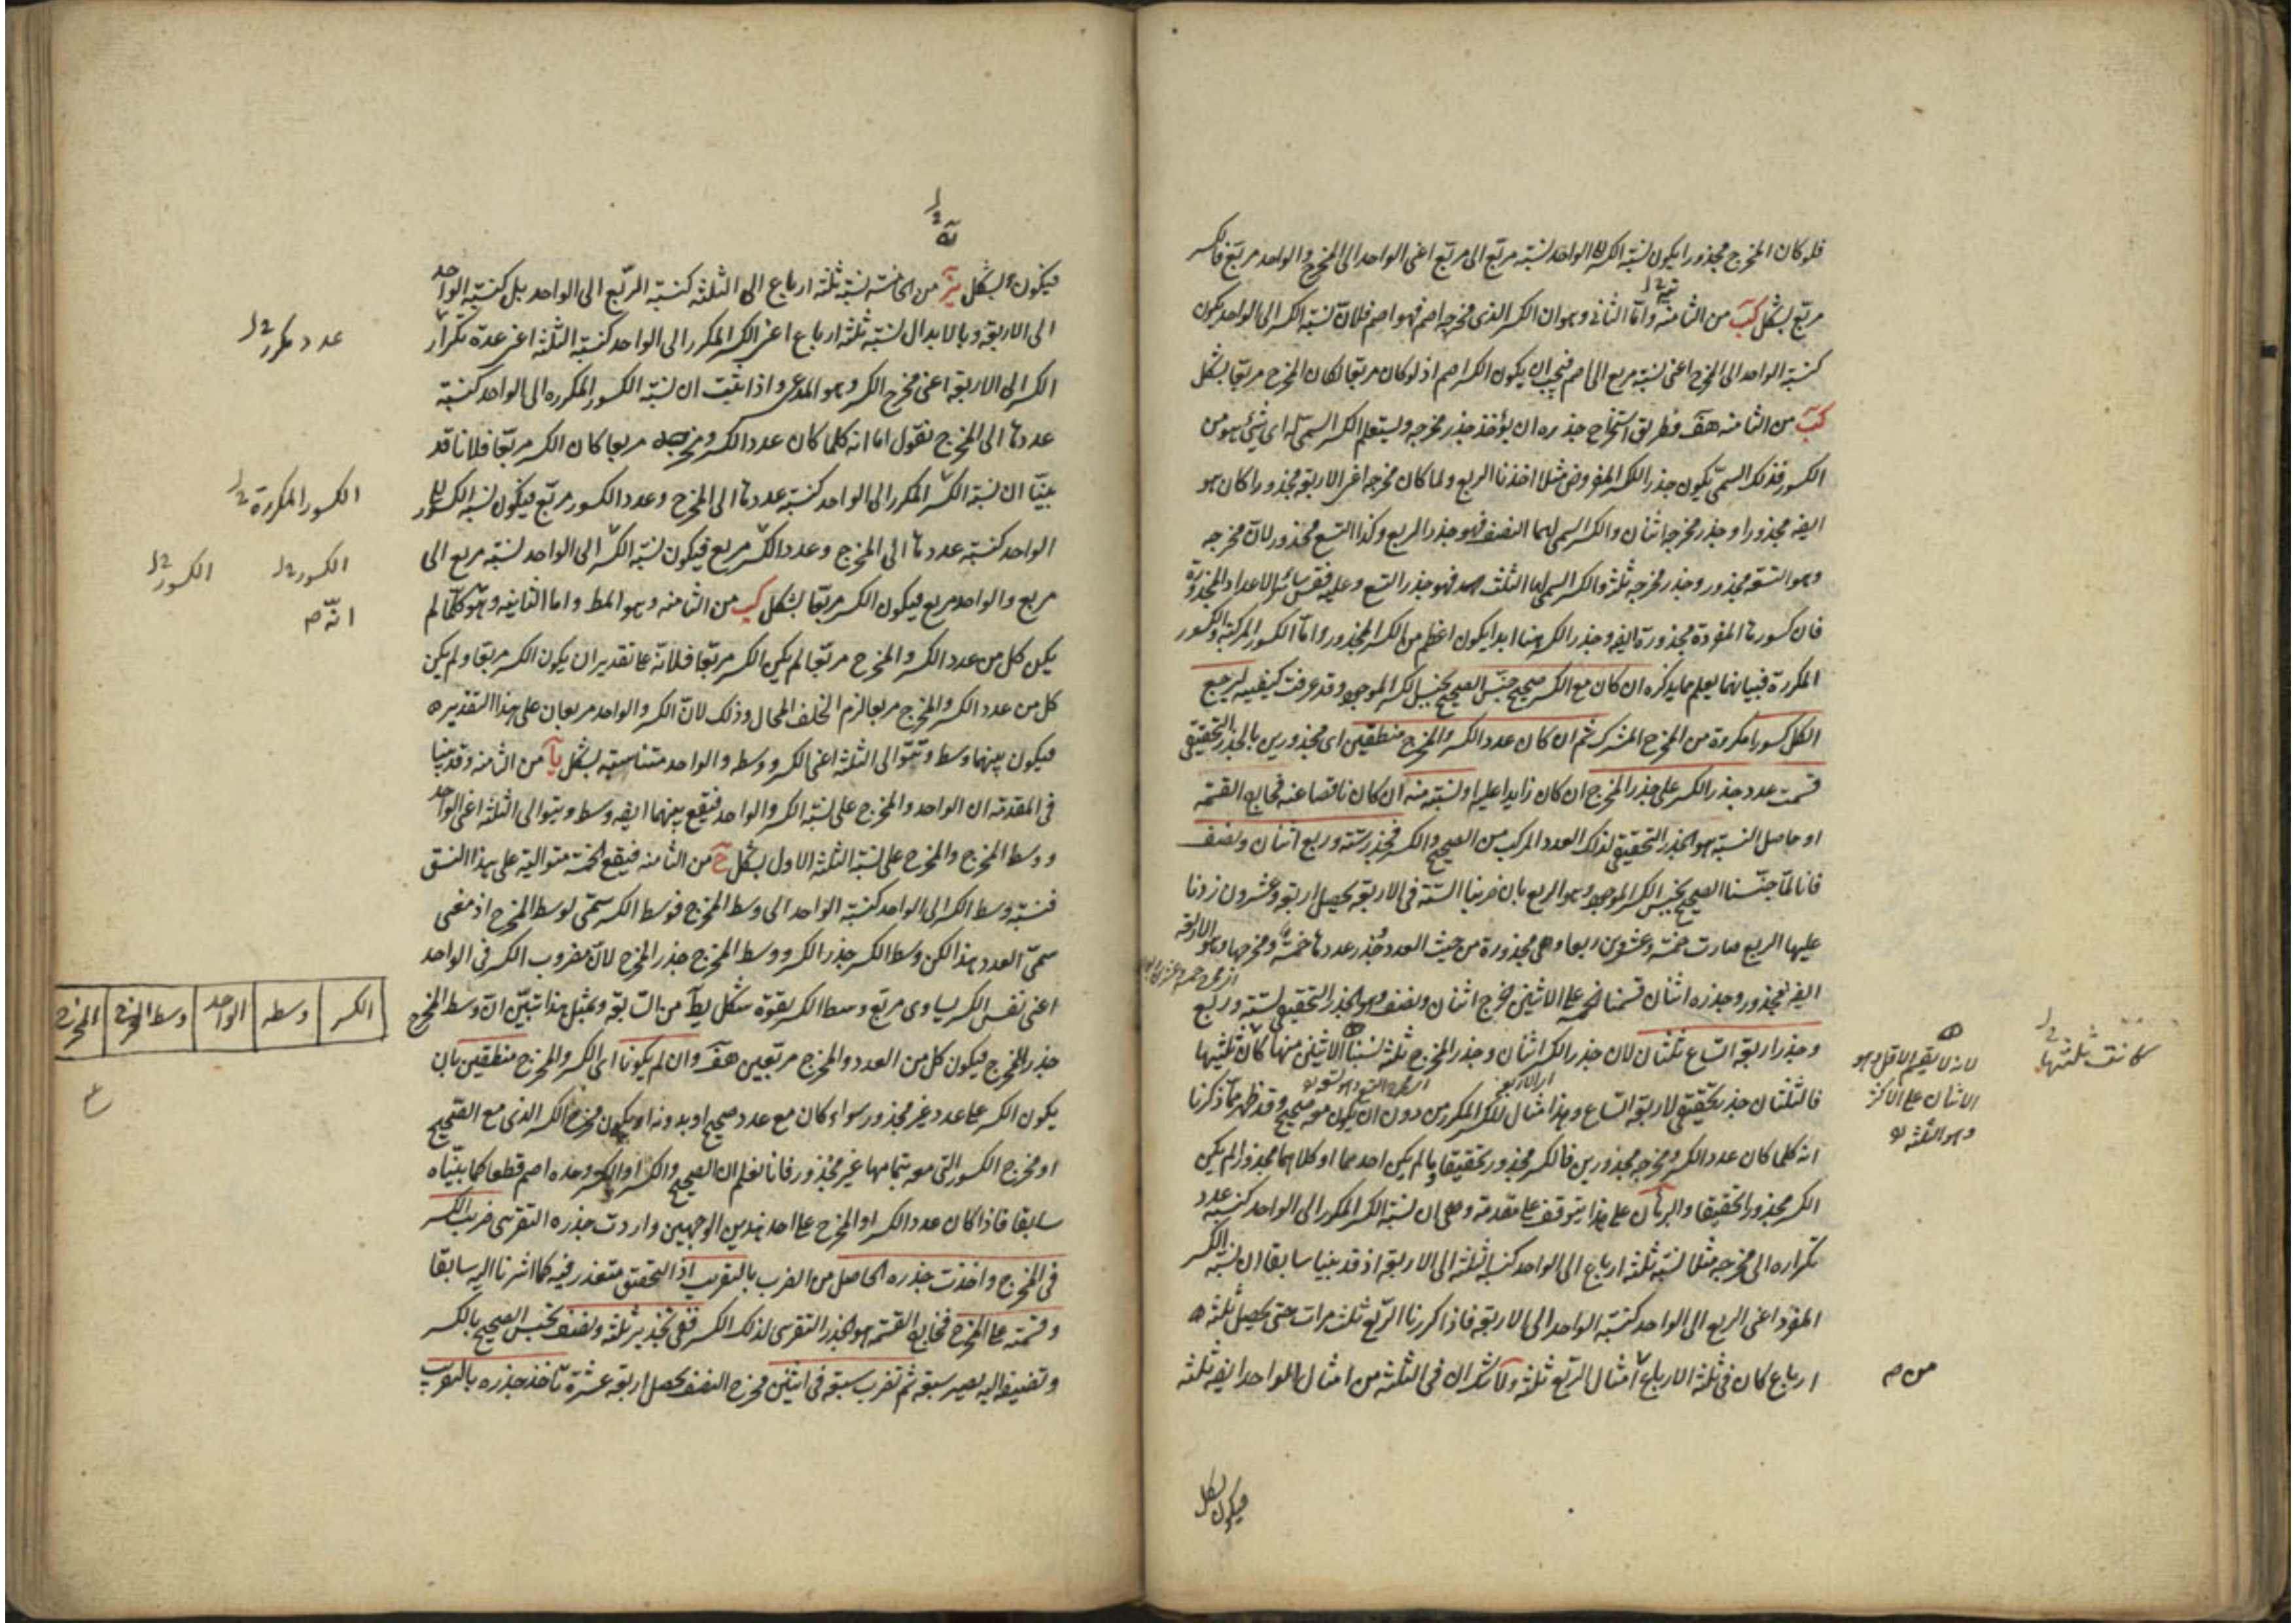 فلو كان المخرج مجذورا يكون نسبة الكسر الى الواحد نسبة مربع الى مربع اعنى الواحد الى المخرج والواحد مربع فالكسر
مربع بشكل كب من الثامنة واما الثانى وهو ان الكسر الذى مخرجه اصم فهو اصم فلان نسبة الكسر الى الواحد يكون
كنسبة الواحد الى المخرج اعنى نسبة مربع الى اصم فيجب ان يكون الكسر اصم اذ لو كان مربعا لكان المخرج مربعا بشكل
كب من الثامنة هف وطريق استخراج جذره ان يؤخذ جذر مخرجه ويستعلم الكسر السمى له اى شئ هو من
الكسور فذلك السمى يكون جذر الكسر المفروض مثلا اخذنا الربع ولما كان مخرجه اعنى الاربعة مجذورا كان هو
ايضه مجذورا وجذر مخرجه اثنان والكسر السمى لهما النصف فهو جذر الربع وكذا التسع مجذور لان مخرجه
وهو التسعة مجذور وجذر مخرجه ثلثة والكسر السمى لها الثلث فهو جذر التسع وعليه فقس سائر الاعداد المجذورة
فان كسورها المفردة مجذورة ايضه وجذر الكسر هنا ابدا يكون اعظم من الكسر المجذور واما الكسور المركبة والكسور
المكررة فبيانهما يعلم مما يذكره ان كان مع الكسر صحيح جنس الصحيح بجنس الكسر الموجود وقد عرفت كيفيته ليرجع
الكل كسورا مكررة من المخرج المشترك ثم ان كان عدد الكسر والمخرج منطقين اى مجذورين بالجذر التحقيقى
قسمت عدد جذر الكسر على جذر المخرج ان كان زايدا عليه او نسبته منه ان كان ناقصا عنه فخارج القسمة
او حاصل النسبة هو الجذر التحقيقى لذلك العدد المركب من الصحيح والكسر فجذر ستة وربع اثنان ونصف
فانا لما جنسنا الصحيح بجنس الكسر الموجود وهو الربع بان ضربنا الستة فى الاربعة يحصل اربعة وعشرون زدنا
عليها الربع صارت خمسة وعشرون ربعا وهى مجذورة من حيث العدد وجذر عددها خمسة ومخرجها وهو الاربعة
ايضه مجذور وجذره اثنان قسمنا خمسة على الاثنين يخرج اثنان ونصف وهو الجذر التحقيقى لستة وربع
وجذر اربعة اتساع ثلثان لان جذر الكسر اثنان وجذر المخرج ثلثة نسبنا الاثنين منها كان ثلثيها
فالثلثان جذر تحقيقى لاربعة اتساع وهذا مثال للكسر المكرر من دون ان يكون معه صحيح وقد ظهر مما ذكرنا
انه كلما كان عدد الكسر ومخرجه مجذورين فالكسر مجذور تحقيقا وما لم يكن احدهما او كلاهما مجذورا لم يكن
الكسر مجذورا تحقيقا والبرهان على هذا يتوقف على مقدمة وهى ان نسبة الكسر المكرر الى الواحد كنسبة عدد
تكراره الى مخرجه مثلا نسبة ثلثة ارباع الى الواحد كنسبة ثلثة الى الاربعة اذ قد بينا سابقا ان نسبة الكسر
المفرد اعنى الربع الى الواحد كنسبة الواحد الى الاربعة فاذا كررنا الربع ثلث مرات حتى يحصل ثلثة
ارباع كان فى ثلثة الارباع امثال الربع ثلثة ولا شك ان فى الثلثة من امثال الواحد ايضه ثلثة
فيكون بشكل
كانت ثلثيها
لانه لا يقسم الاقل وهو
الاثنان على الاكثر
وهو الثلثة
من م
فيكون بشكل يز من الخامسة نسبة ثلثة ارباع الى الثلثة كنسبة الربع الى الواحد بل كنسبة الواحد
الى الاربعة وبالابدال نسبة ثلثة ارباع اعنى الكسر المكرر الى الواحد كنسبة الثلثة اعنى عدة تكرار
الكسر الى الاربعة اعنى مخرج الكسر وهو المدعى واذا ثبت ان نسبة الكسور المكررة الى الواحد كنسبة
عددها الى المخرج نقول اما انه كلما كان عدد الكسر ومخرجه مربعا كان الكسر مربعا فلانا قد
بينا ان نسبة الكسر المكرر الى الواحد كنسبة عددها الى المخرج وعدد الكسور مربع فيكون نسبة الكسور الى
الواحد كنسبة عددها الى المخرج وعدد الكسر مربع فيكون نسبة الكسر الى الواحد نسبة مربع الى
مربع والواحد مربع فيكون الكسر مربعا بشكل كب من الثامنة وهو المط واما الثانية وهو كلما لم
يكن كل من عدد الكسر والمخرج مربعا لم يكن الكسر مربعا فلانه على تقدير ان يكون الكسر مربعا ولم يكن
كل من عدد الكسر والمخرج مربعا لزم الخلف المحال وذلك لان الكسر والواحد مربعان على هذا التقدير
فيكون بينهما وسط وتتوالى الثلثة اعنى الكسر ووسطه والواحد متناسبة بشكل يا من الثامنة وقد بينا
فى المقدمة ان الواحد والمخرج على نسبة الكسر والواحد فيقع بينهما ايضه وسط ويتوالى الثلثة اعنى الواحد
ووسط المخرج والمخرج على نسبة الثلثة الاول بشكل ح من الثامنة فيقع الخمسة متوالية على هذا النسق
فنسبة وسط الكسر الى الواحد كنسبة الواحد الى وسط المخرج فوسط الكسر سمى لوسط المخرج اذ معنى
سمى العدد هذا لكن وسط الكسر جذر الكسر ووسط المخرج جذر المخرج لان مضروب الكسر فى الواحد
اعنى نفس الكسر يساوى مربع وسط الكسر بقوة شكل يط من السابعة وبمثل هذا تبين ان وسط المخرج
جذر المخرج فيكون كل من العدد والمخرج مربعين هف وان لم يكونا اى الكسر والمخرج منطقين بان
يكون الكسر على عدد غير مجذور سواء كان مع عدد صحيح او بدونه او يكون مخرج الكسر الذى مع الصحيح
او مخرج الكسور التى معه بتمامها غير مجذور فانا نعلم ان الصحيح والكسر او الكسر وحده اصم قطعا كما بيناه
سابقا فاذا كان عدد الكسر او المخرج على احد هذين الوجهين واردت جذره التقريبى ضربت الكسر
فى المخرج واخذت جذره الحاصل من الضرب بالتقريب اذ التحقيق متعذر فيه كما اشرنا اليه سابقا
وقسمته على المخرج فخارج القسمة هو الجذر التقريبى لذلك الكسر ففى تجذير ثلثة ونصف تجنس الصحيح بالكسر
وتضيفه اليه يصير سبعة ثم تضرب سبعة فى اثنين مخرج النصف يحصل اربعة عشرة تأخذ جذره بالتقريب
عدد مكرر
الكسور المكررة
الكسور الكسور
انه م
الكسر وسطه الواحد وسط المخرج المخرج